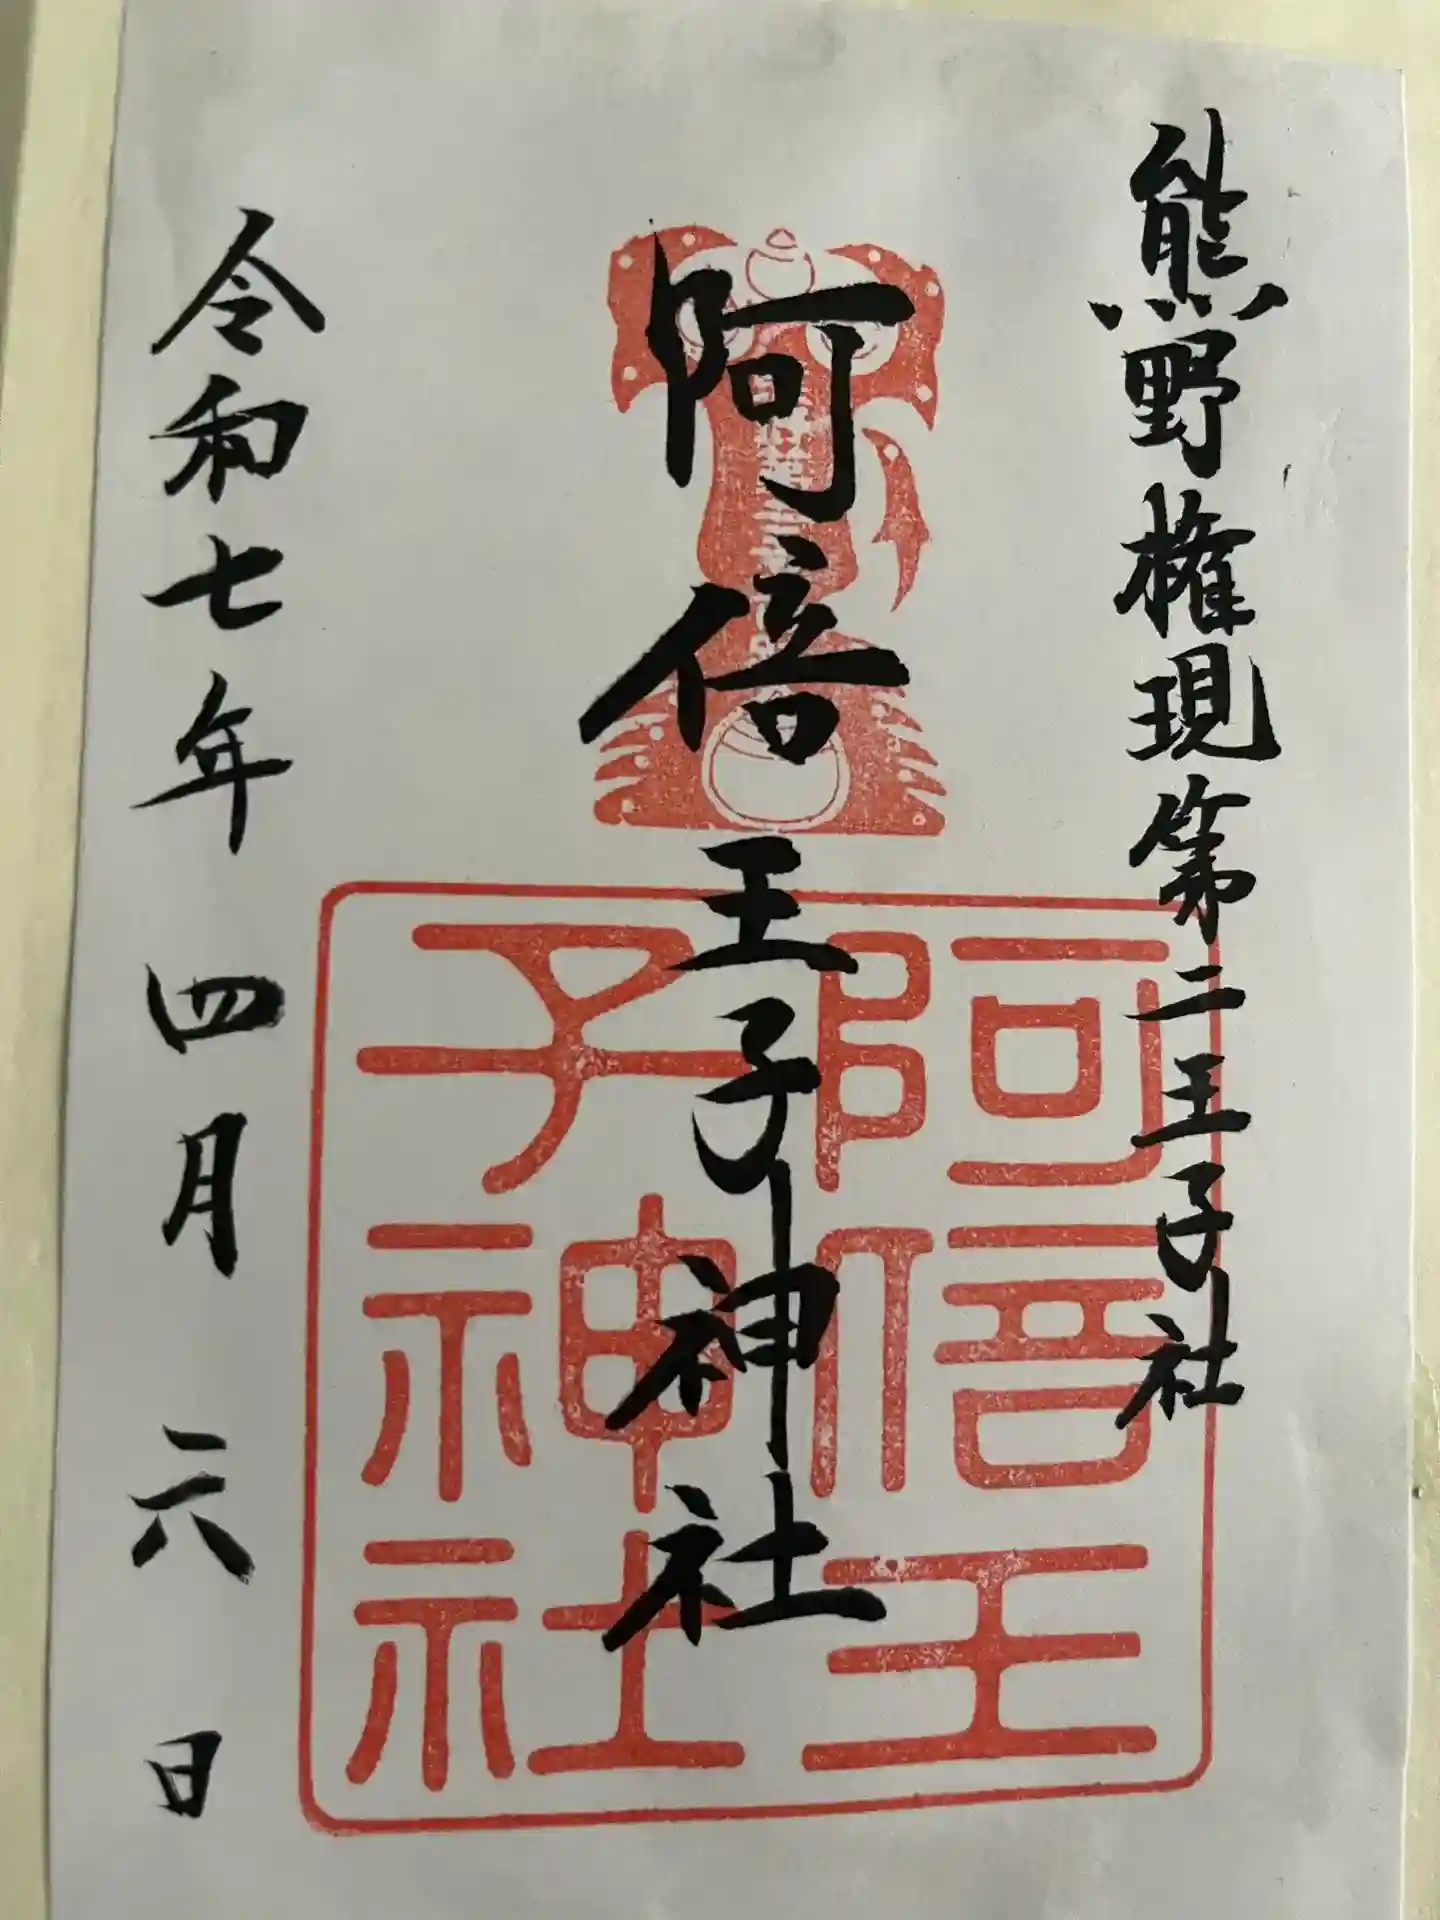 熊野権現第二王子社
阿倍王子神社
令和七年四月二六日
阿倍王
子神社